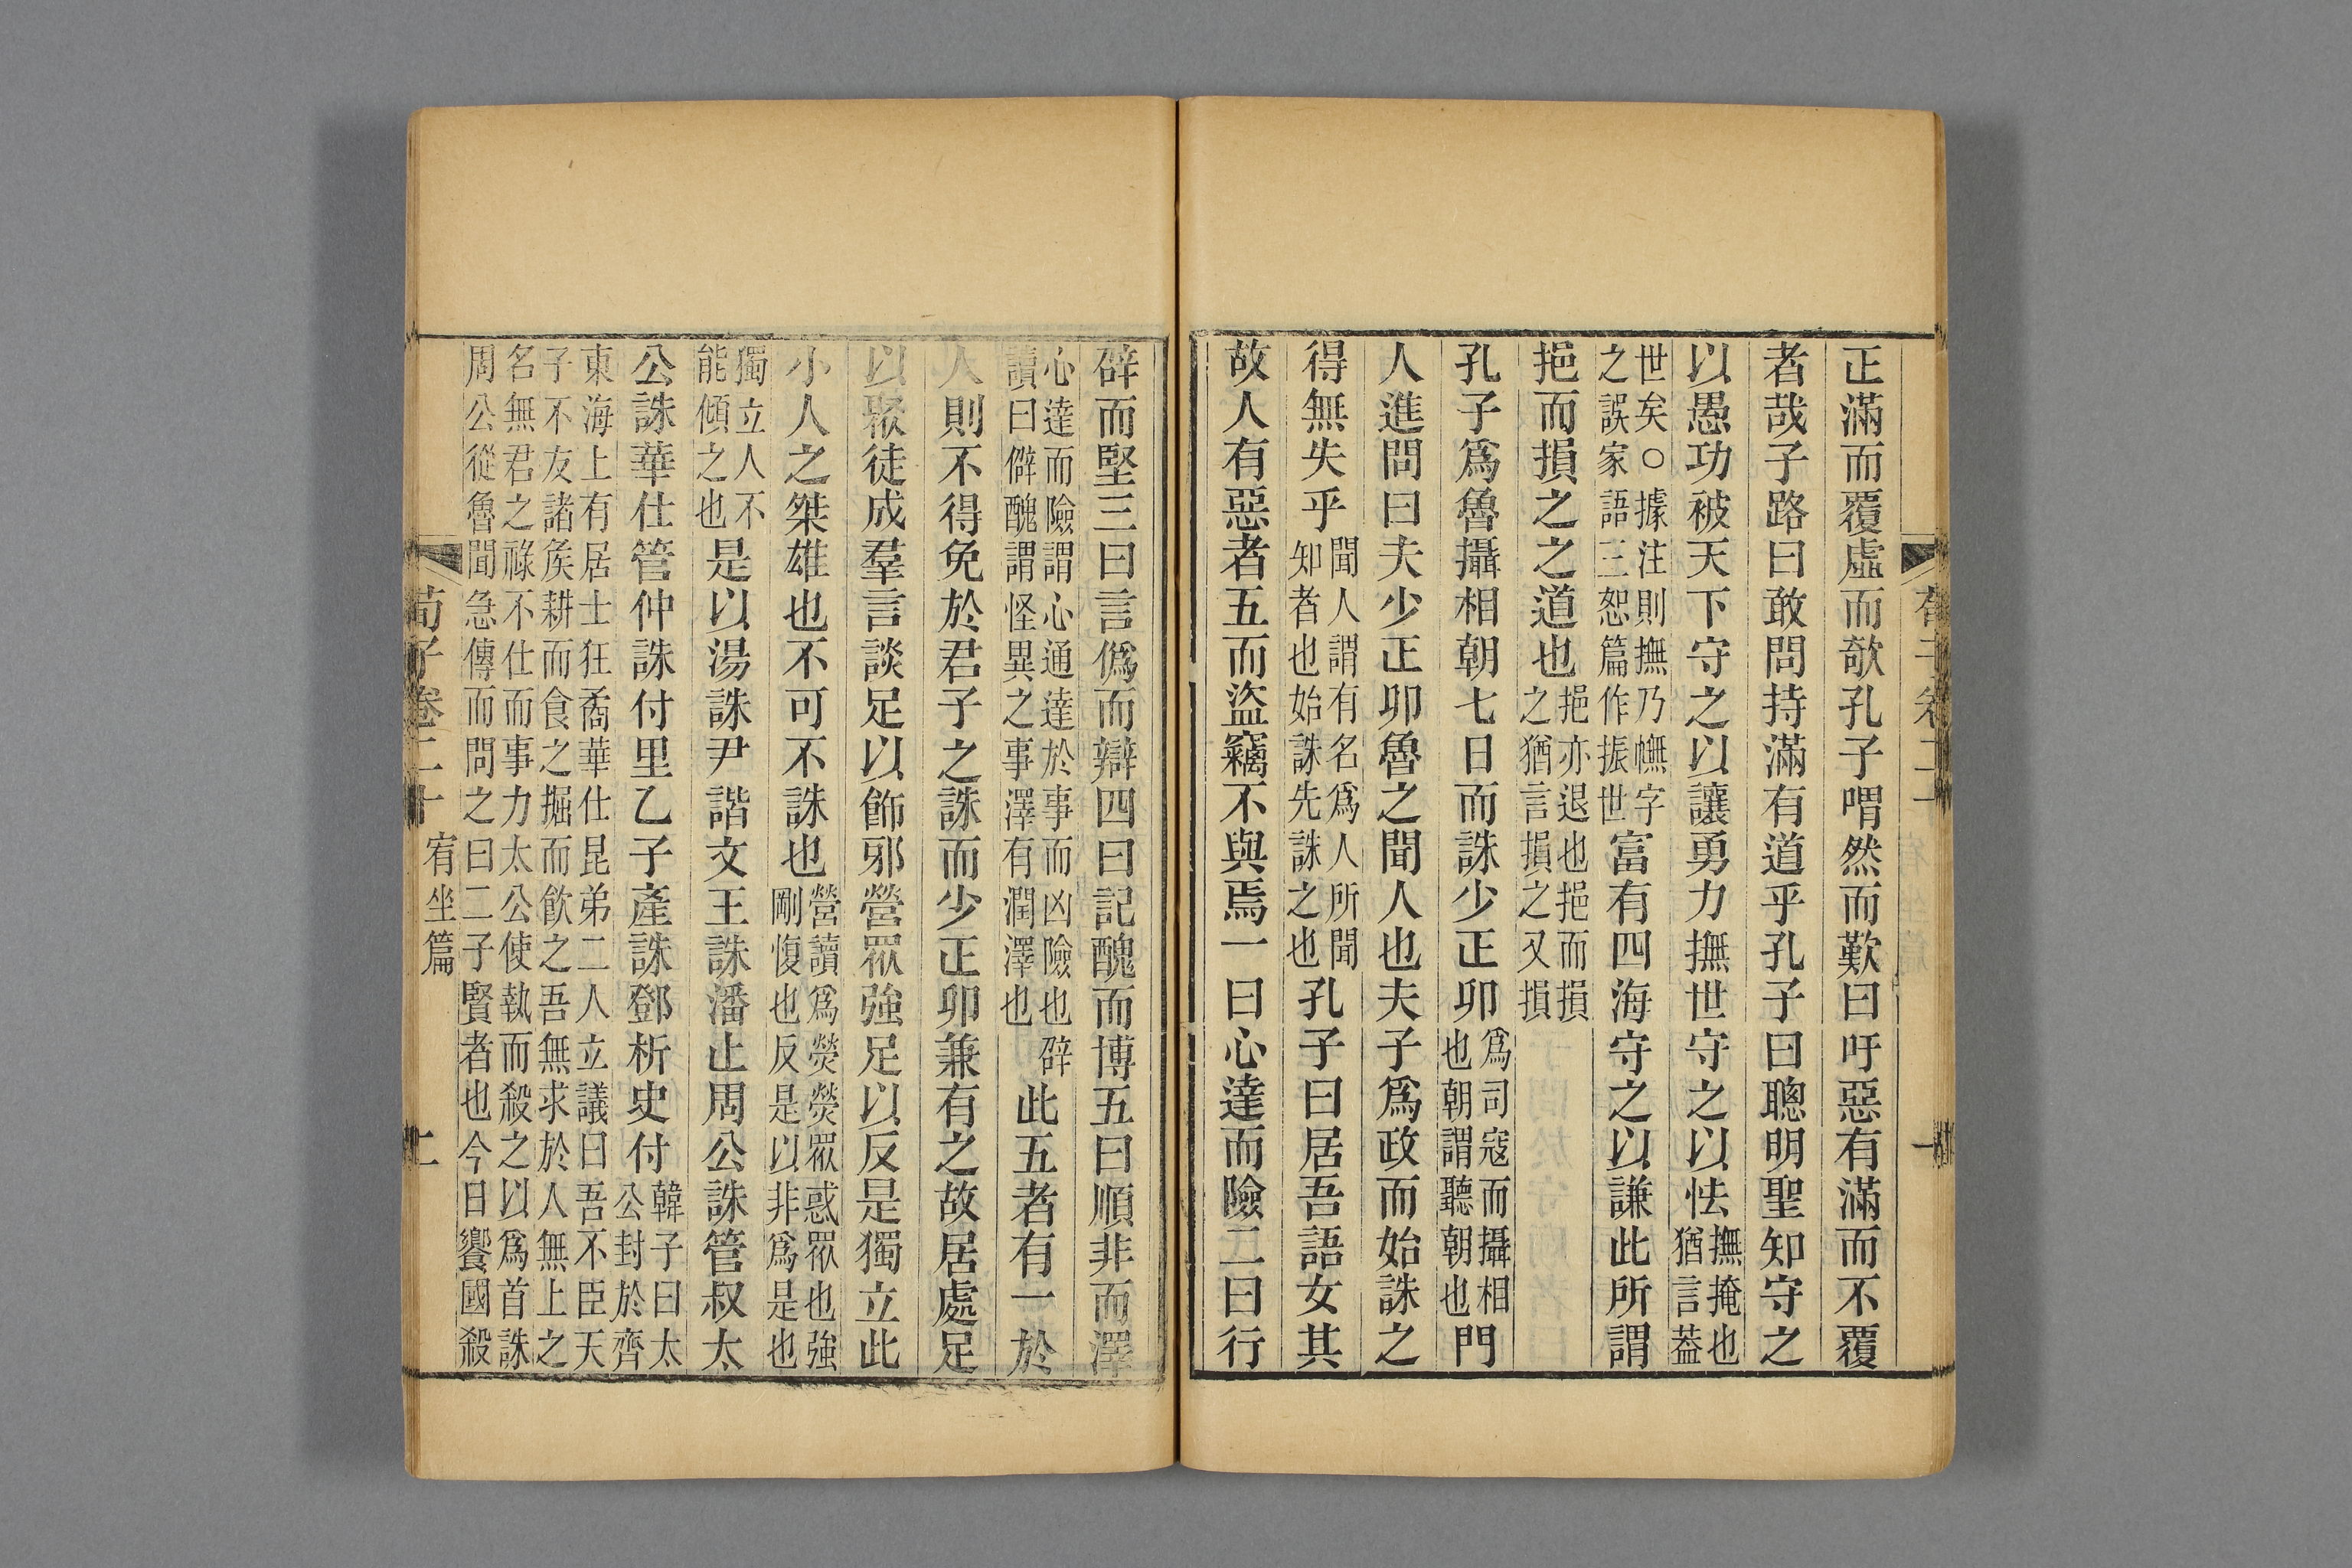 正滿而覆虛而欹孔子喟然而歎曰吁惡有滿而不覆
者哉子路曰敢問持滿有道乎孔子曰聰明聖知守之
以愚功被天下守之以讓勇力撫世守之以怯撫掩也猶言葢
世矣○據注則撫乃幠字之誤家語三恕篇作振世富有四海守之以謙此所謂
挹而損之之道也挹亦退也挹而損之猶言損之又損
孔子爲魯攝相朝七日而誅少正卯爲司寇而攝相也朝謂聽朝也門
人進問曰夫少正卯魯之聞人也夫子爲政而始誅之
得無失乎聞人謂有名爲人所聞知者也始誅先誅之也孔子曰居吾語女其
故人有惡者五而盜竊不與焉一曰心達而險二曰行
辟而堅三曰言僞而辯四曰記醜而博五曰順非而澤
心達而險謂心通達於事而凶險也辟讀曰僻醜謂怪異之事澤有潤澤也此五者有一於
人則不得免於君子之誅而少正卯兼有之故居處足
以聚徒成羣言談足以飾邪營眾強足以反是獨立此
小人之桀雄也不可不誅也營讀爲熒熒眾惑眾也強剛愎也反是以非爲是也
獨立人不能傾之也是以湯誅尹諧文王誅潘止周公誅管叔太
公誅華仕管仲誅付里乙子產誅鄧析史付韓子曰太公封於齊
東海上有居士狂矞華仕昆弟二人立議曰吾不臣天
子不友諸矦耕而食之掘而飲之吾無求於人無上之
名無君之祿不仕而事力太公使執而殺之以爲首誅
周公從魯聞急傳而問之曰二子賢者也今日饗國殺
荀子卷二十 宥坐篇 二